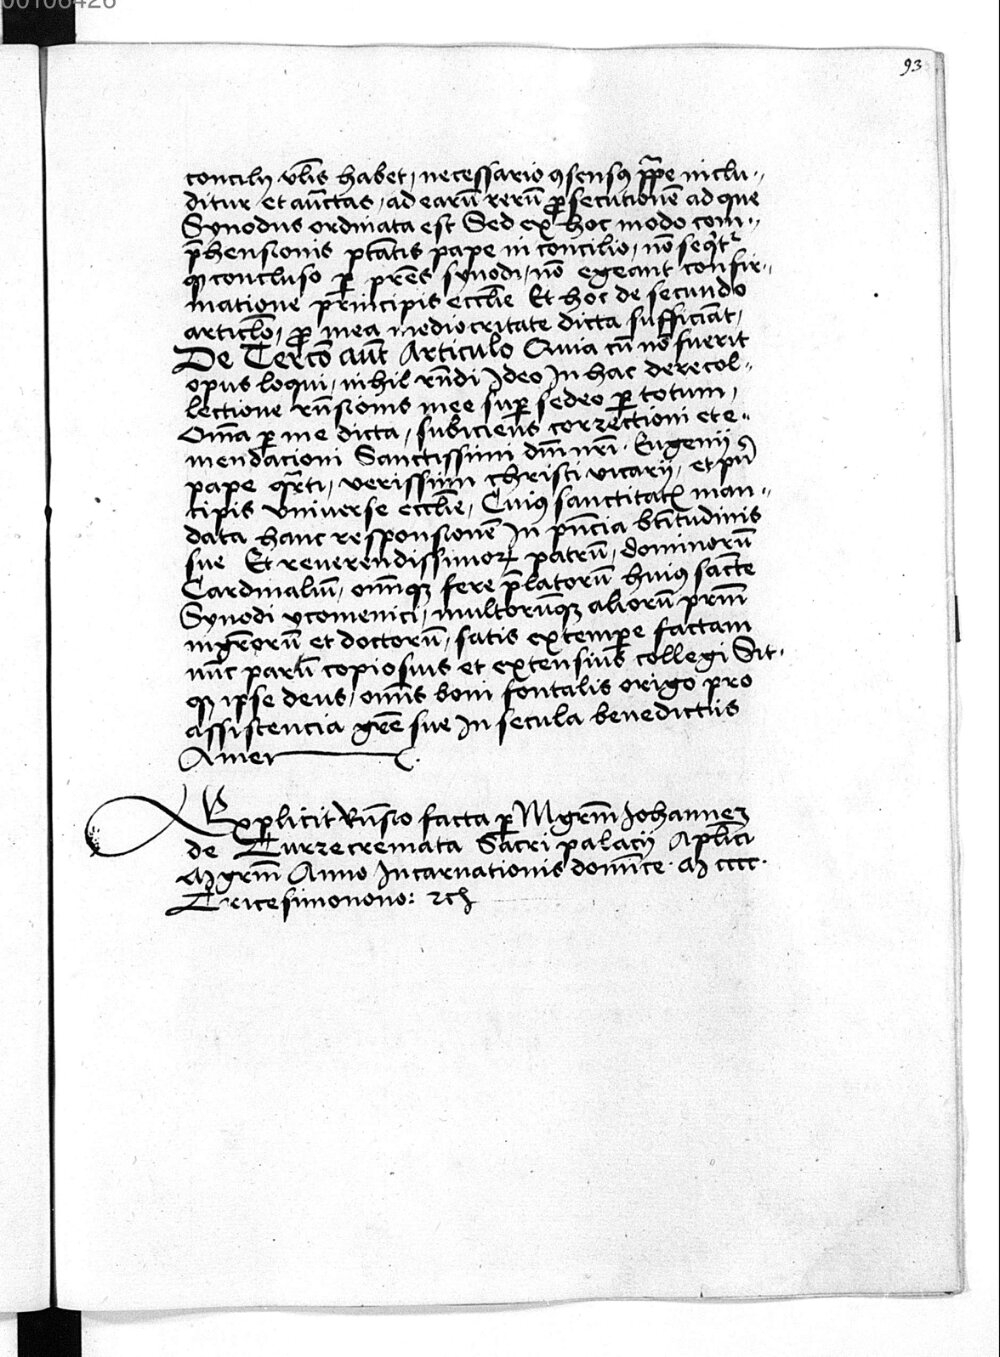 00106426
93
concilij vlis habet, necessario ɔsensꝯ ppe inclu-
ditur et auctas, ad earū rerū ꝓsecutionē ad que
Synodus ordinata est Sed ex hoc modo com-
p̄hensionis ptatis pape in concilio, nō seqt᷑
ꝙ conclusō ꝑ pres̄ synodi, nō egeant confir-
matione principis eccl̄ie Et hoc de secundo
articlo, ꝓ mea mediocritate dicta sufficiāt,
De Tercō aūt Articulo Quia cū nō fuerit
opus loqui, nihil rn̄di Ideo In hac derecol-
lectione rn̄sionis mee suꝑ sedeo ꝑ totum,
Om̄ia ꝑ me dicta, subiciens correctioni et e-
mendacioni Sanctissimi dn̄i nr̄i. Eugenij
pape qrti, verissimi christi vicarij, et pn̄
cipis vniuerse eccl̄ie, Cuiꝯ sanctitatꝭ man-
data hanc responsionē In pn̄cia btitudinis
sue Et reuerendissimoꝝ patrū, dominorū
Cardinaliū, om̄iqꝫ fere p̄latorū huiꝯ sacte
Synodi ycomenici, multorūqꝫ aliorū prm̄
mgrorū et doctorū, satis extempe factam
nūc parū copiosius et extensius collegi Sit
ꝙ ipse deus, om̄is boni fontalis origo pro
assistencia gr̄e sue In secula benedictus
Amen
Explicit Rn̄sio facta ꝑ Mgrm̄ Johannez
de Turrecremata Sacri palacij Aplici
Mgrm̄ Anno Incarnationis domīce. M cccc.
Tricesimonono: ꝛcꝭ